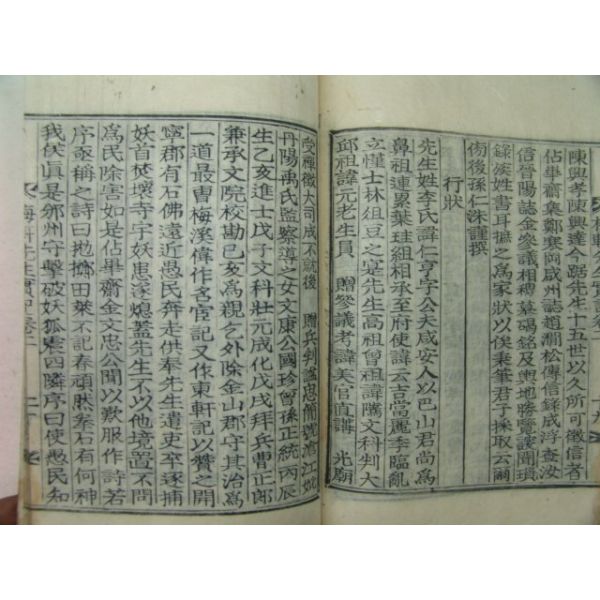 陳興孝陳興達今踞先生十五世以久所可徵信者
佔畢齋集鄭寒岡咸州誌趙澗松傳信錄成浮查汝
信晉陽誌金參議相稷墓碣銘及輿地勝覽謏聞瑣
錄族姓書耳摭之爲家狀以俟秉筆君子採取云爾
傍後孫仁洙謹撰
行狀
先生姓李氏諱仁亨字公夫咸安人以巴山君尚爲
鼻祖連累葉珪組相承至府使諱云吉當麗季臨亂
立慬士林俎豆之寔先生高祖曾祖諱騰文科判大
邱祖諱元老生員 贈參議考諱美官直講 光廟
受禪徵大司成不就後 贈兵判諡忠簡號滄江妣
丹陽禹氏監察導之女文康公國珍曾孫正統丙辰
生乙亥進士戊子文科壯元成化戊戌拜兵曹正郎
兼承文院校勘己亥爲親乞外除金山郡守其治爲
一道最曹梅溪偉作名宦記又作東軒記以贊之開
寧郡有石佛遠近愚民奔走供奉先生遣吏卒逐捕
妖首焚壞寺宇妖患遂熄蓋先生不以他境置不問
爲民除害如是佔畢齋金文忠公聞以歎服作詩若
序亟稱之詩曰地擲田萊不記春頑然塊石有何神
我侯眞是鄕州守擊破妖狐震四隣序曰使愚民知
梅軒先生實記卷二 二十